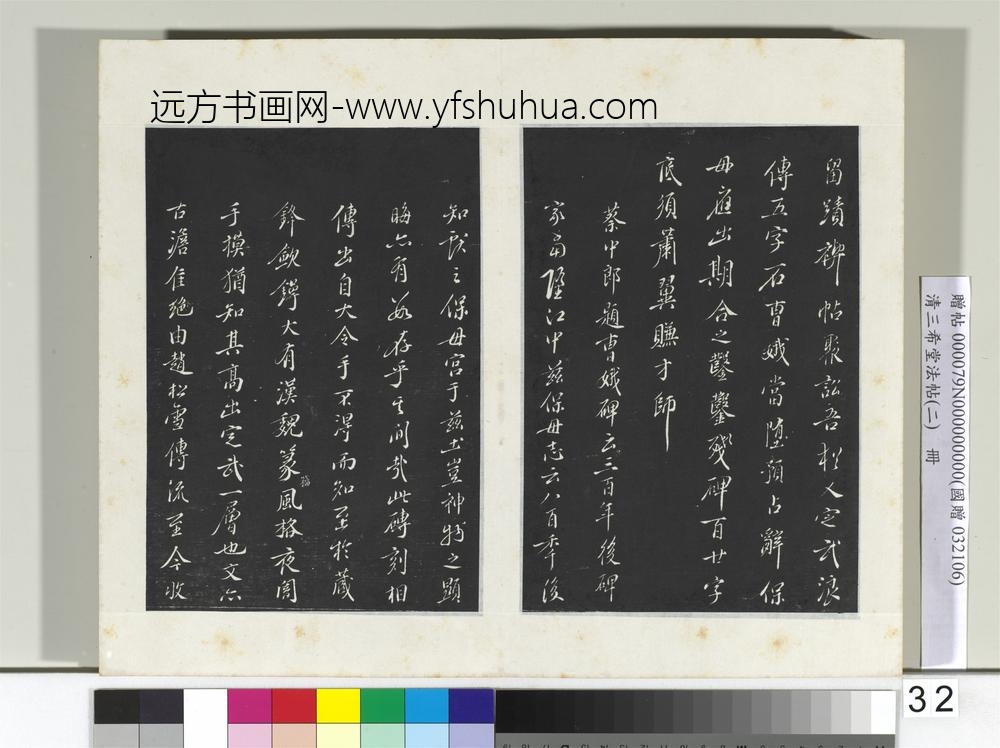 远方书画网-www.yfshuhua.com
留蹟碑帖聚訟吾於人定武浪
傳五字石曹娥當墮預占辭保
母應出期合之鑿鑿殘碑百廿字
底須蕭翼賺才師
蔡中郎題曹娥碑云三百年後碑
冢當墮江中茲保母志云八百年後
知獻之保母宮于茲土豈神物之顯
晦亦有数存乎其间哉此磚刻相
傳出自大令手不淂而知至於藏
鋒歛鍔大有漢魏篆風格夜闇
摘
手摸猶知其高出定武一層也文亦
古澹佳絶由趙松雪傳流至今收
贈帖 000079N000000000(國贈 032106)
清三希堂法帖(二) 冊
32